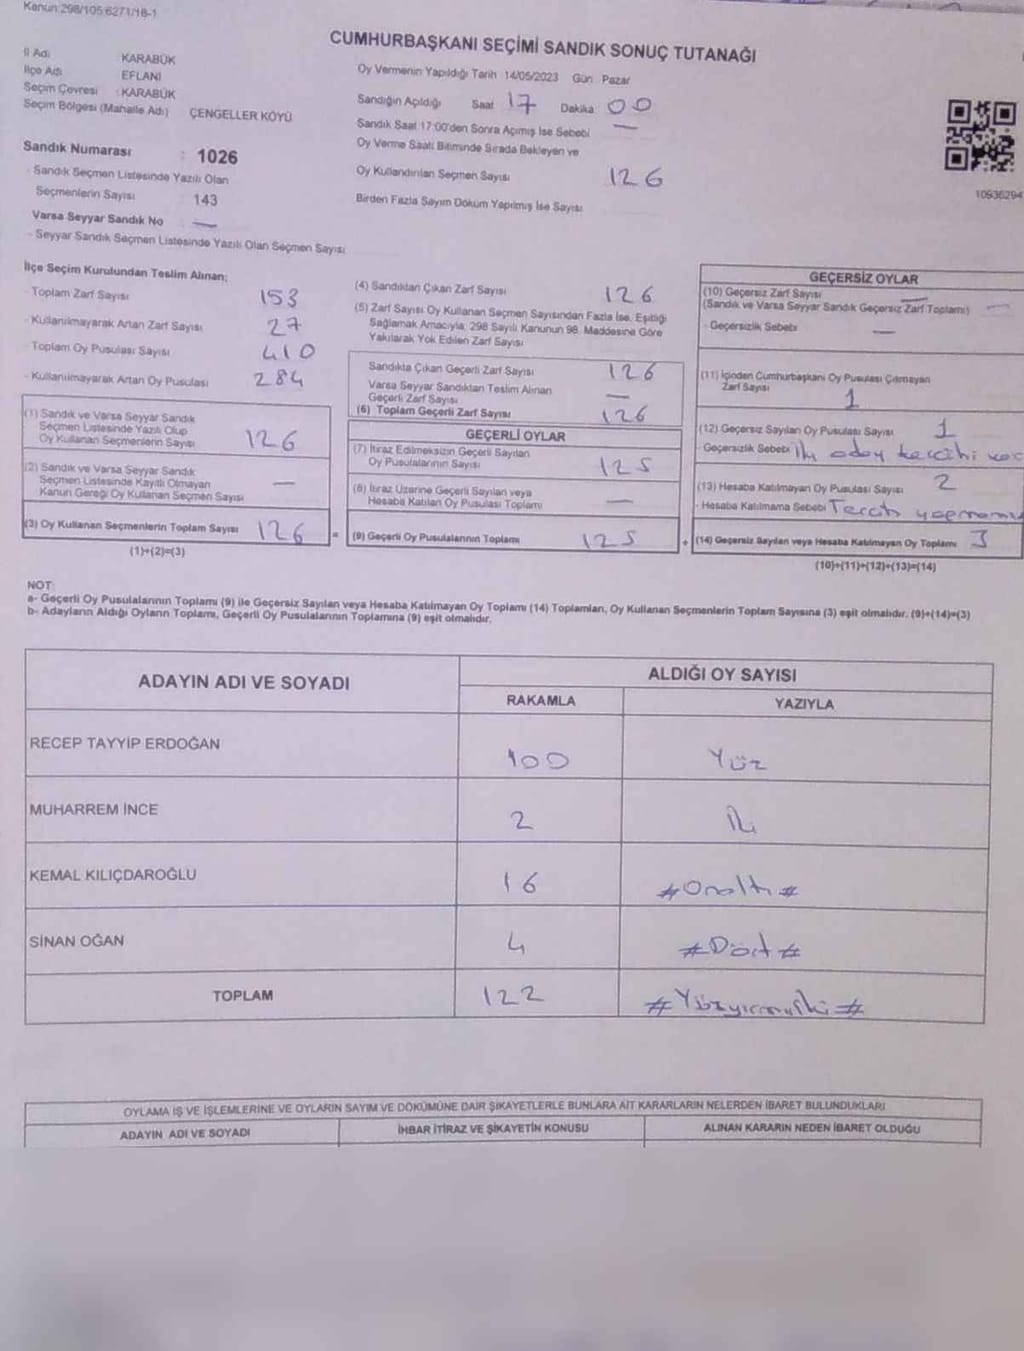 Kanun:298/105;6271/18-1
CUMHURBAŞKANI SEÇİMİ SANDIK SONUÇ TUTANAĞI
İl Adı : KARABÜK
İlçe Adı : EFLANİ
Seçim Çevresi : KARABÜK
Seçim Bölgesi (Mahalle Adı) : ÇENGELLER KÖYÜ
Sandık Numarası : 1026
- Sandık Seçmen Listesinde Yazılı Olan
Seçmenlerin Sayısı : 143
Varsa Seyyar Sandık No : —
- Seyyar Sandık Seçmen Listesinde Yazılı Olan Seçmen Sayısı
Oy Vermenin Yapıldığı Tarih 14/05/2023 Gün : Pazar
Sandığın Açıldığı Saat 17 Dakika 00
Sandık Saat 17:00'den Sonra Açılmış İse Sebebi —
Oy Verme Saati Bitiminde Sırada Bekleyen ve
Oy Kullandırılan Seçmen Sayısı 126
Birden Fazla Sayım Döküm Yapılmış İse Sayısı
10936294
İlçe Seçim Kurulundan Teslim Alınan;
- Toplam Zarf Sayısı 153
- Kullanılmayarak Artan Zarf Sayısı 27
- Toplam Oy Pusulası Sayısı 410
- Kullanılmayarak Artan Oy Pusulası 284
(1) Sandık ve Varsa Seyyar Sandık
Seçmen Listesinde Yazılı Olup
Oy Kullanan Seçmenlerin Sayısı 126
(2) Sandık ve Varsa Seyyar Sandık
Seçmen Listesinde Kayıtlı Olmayan
Kanun Gereği Oy Kullanan Seçmen Sayısı —
(3) Oy Kullanan Seçmenlerin Toplam Sayısı 126 =
(1)+(2)=(3)
(4) Sandıktan Çıkan Zarf Sayısı 126
(5) Zarf Sayısı Oy Kullanan Seçmen Sayısından Fazla İse, Eşitliği
Sağlamak Amacıyla; 298 Sayılı Kanunun 98. Maddesine Göre
Yakılarak Yok Edilen Zarf Sayısı
Sandıkta Çıkan Geçerli Zarf Sayısı 126
Varsa Seyyar Sandıktan Teslim Alınan
Geçerli Zarf Sayısı —
(6) Toplam Geçerli Zarf Sayısı 126
GEÇERLİ OYLAR
(7) İtiraz Edilmeksizin Geçerli Sayılan
Oy Pusulalarının Sayısı 125
(8) İtiraz Üzerine Geçerli Sayılan veya
Hesaba Katılan Oy Pusulası Toplamı —
(9) Geçerli Oy Pusulalarının Toplamı 125 +
GEÇERSİZ OYLAR
(10) Geçersiz Zarf Sayısı —
(Sandık ve Varsa Seyyar Sandık Geçersiz Zarf Toplamı) —
- Geçersizlik Sebebi —
(11) İçinden Cumhurbaşkanı Oy Pusulası Çıkmayan
Zarf Sayısı 1
(12) Geçersiz Sayılan Oy Pusulası Sayısı 1
- Geçersizlik Sebebi İki aday tercihi
(13) Hesaba Katılmayan Oy Pusulası Sayısı 2
- Hesaba Katılmama Sebebi Tercih
(14) Geçersiz Sayılan veya Hesaba Katılmayan Oy Toplamı 3
(10)+(11)+(12)+(13)=(14)
NOT:
a- Geçerli Oy Pusulalarının Toplamı (9) ile Geçersiz Sayılan veya Hesaba Katılmayan Oy Toplamı (14) Toplamları, Oy Kullanan Seçmenlerin Toplam Sayısına (3) eşit olmalıdır. (9)+(14)=(3)
b- Adayların Aldığı Oyların Toplamı, Geçerli Oy Pusulalarının Toplamına (9) eşit olmalıdır.
ADAYIN ADI VE SOYADI ALDIĞI OY SAYISI
RAKAMLA YAZIYLA
RECEP TAYYİP ERDOĞAN 100 Yüz
MUHARREM İNCE 2 İki
KEMAL KILIÇDAROĞLU 16 #Onaltı#
SİNAN OĞAN 4 #Dört#
TOPLAM 122 #Yüzyirmiiki#
OYLAMA İŞ VE İŞLEMLERİNE VE OYLARIN SAYIM VE DÖKÜMÜNE DAİR ŞİKAYETLERLE BUNLARA AİT KARARLARIN NELERDEN İBARET BULUNDUKLARI
ADAYIN ADI VE SOYADI İHBAR İTİRAZ VE ŞİKAYETİN KONUSU ALINAN KARARIN NEDEN İBARET OLDUĞU